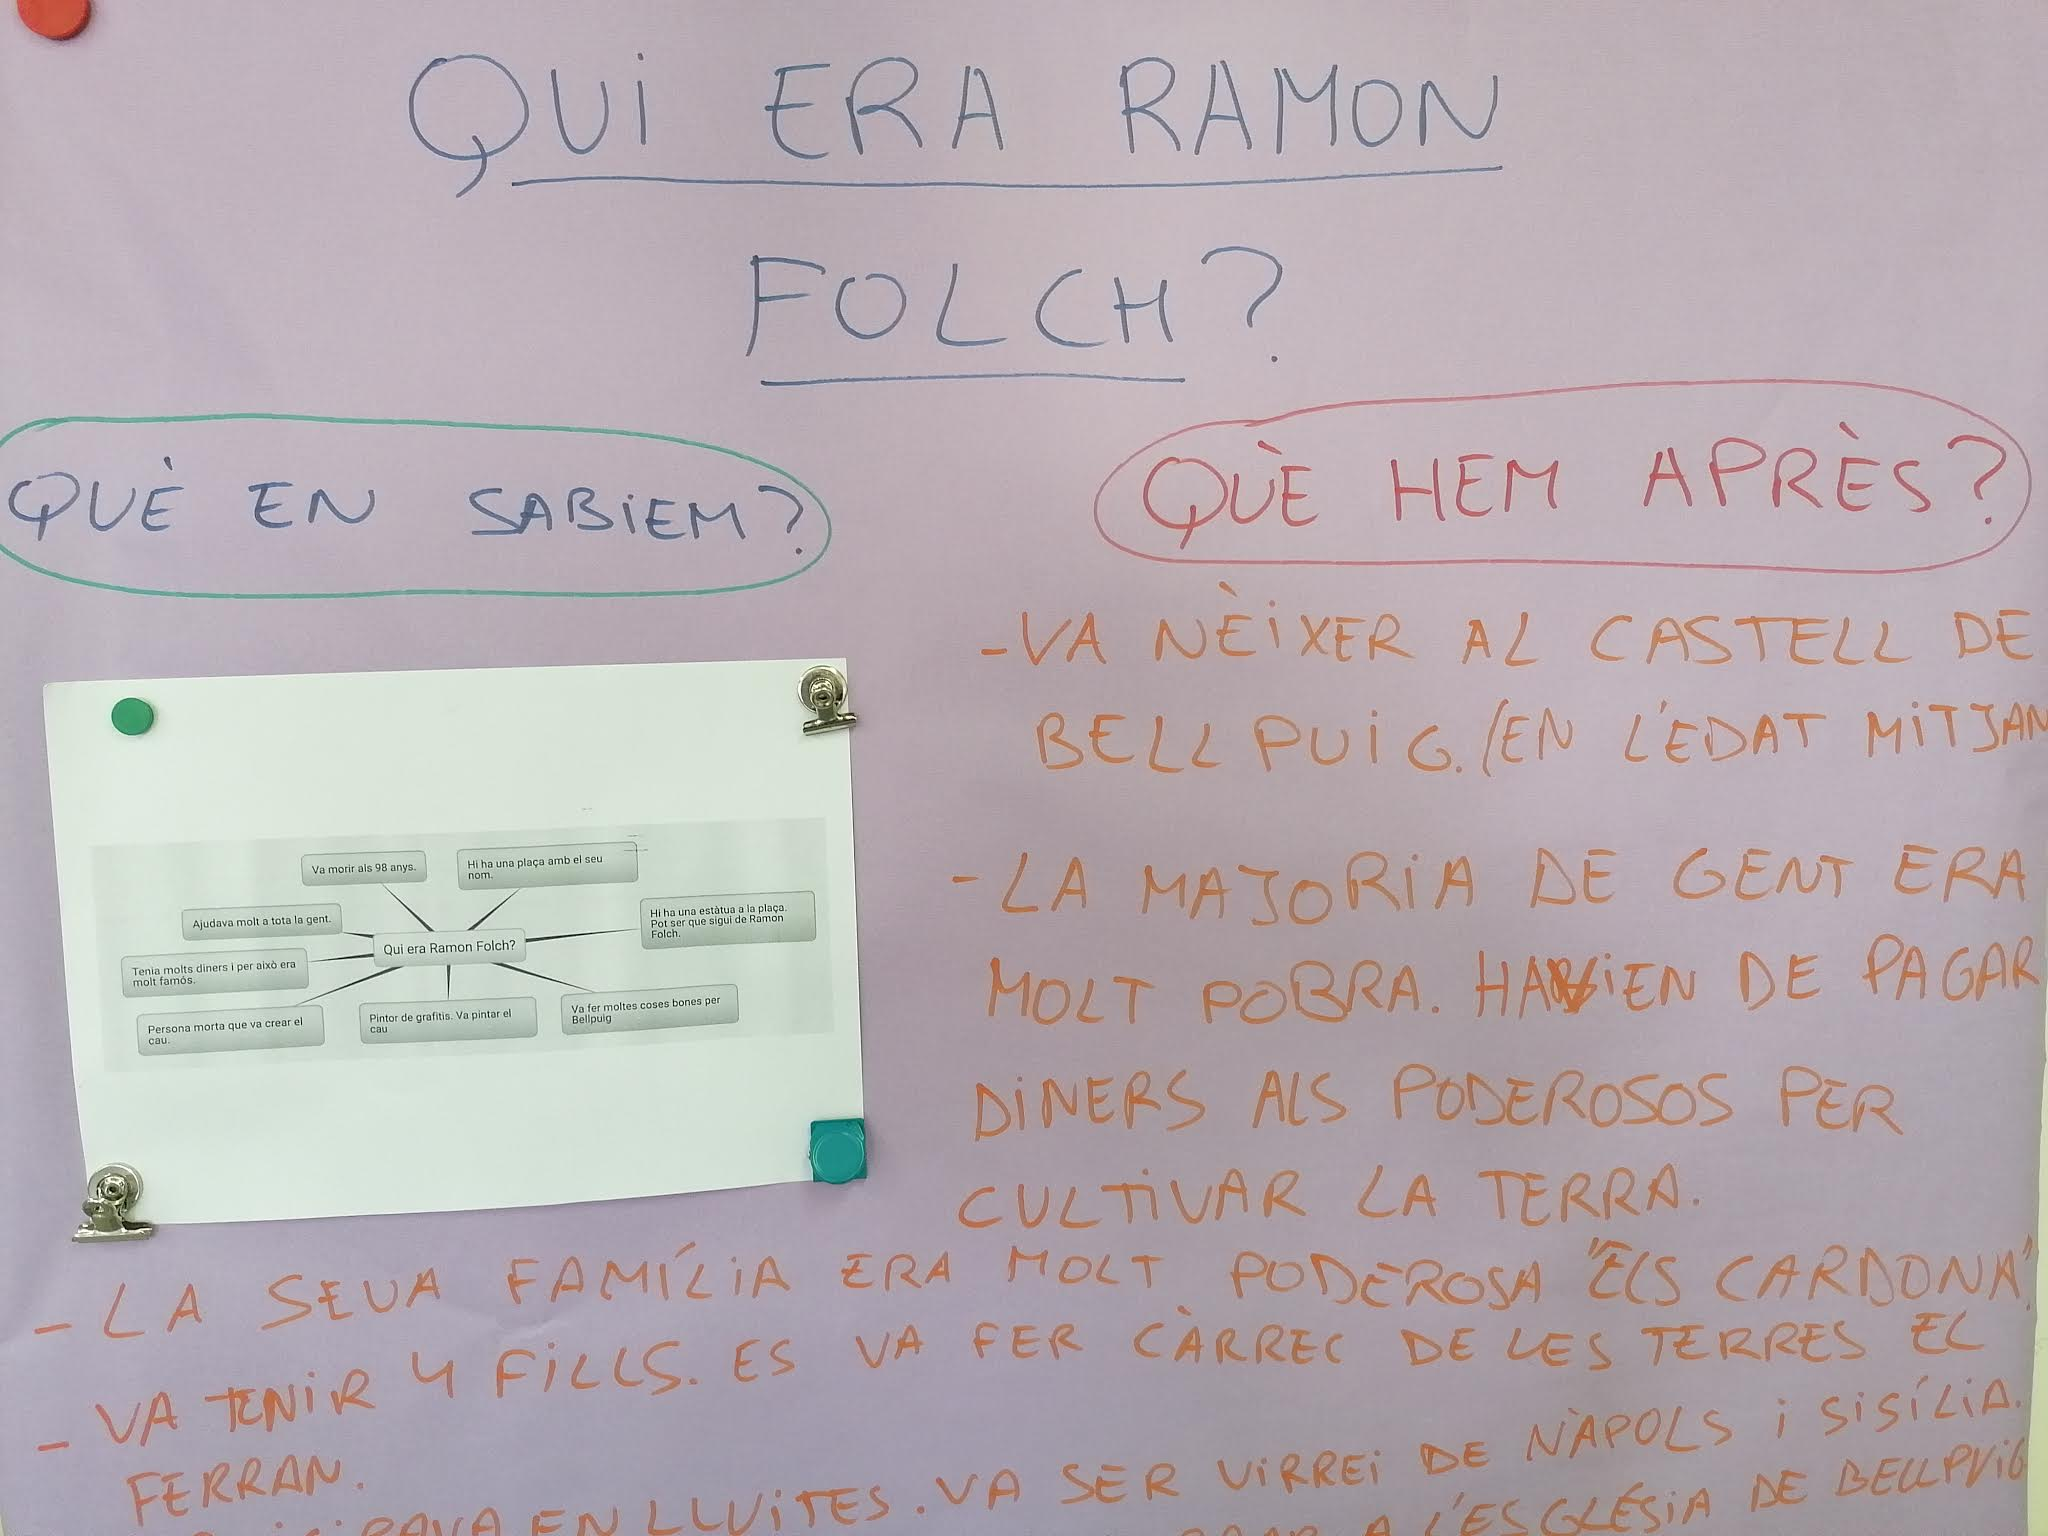 QUI ERA RAMON
FOLCH?
QUÈ EN SABIEM?
Va morir als 98 anys.
Hi ha una plaça amb el seu
nom.
Ajudava molt a tota la gent.
Hi ha una estàtua a la plaça.
Pot ser que sigui de Ramon
Folch.
Qui era Ramon Folch?
Tenia molts diners i per això era
molt famós.
Persona morta que va crear el
cau.
Pintor de grafitis. Va pintar el
cau
Va fer moltes coses bones per
Bellpuig
QUÈ HEM APRÈS?
- VA NÈIXER AL CASTELL DE
BELLPUIG. /EN L'EDAT MITJAN
- LA MAJORIA DE GENT ERA
MOLT POBRA. HAVIEN DE PAGAR
DINERS ALS PODEROSOS PER
CULTIVAR LA TERRA.
- LA SEUA FAMÍLIA ERA MOLT PODEROSA "ELS CARDONA".
- VA TENIR 4 FILLS. ES VA FER CÀRREC DE LES TERRES EL
FERRAN.
EN LLUITES. VA SER VIRREI DE NÀPOLS i SISÍLIA.
A L'ESGLÉSIA DE BELLPUIG